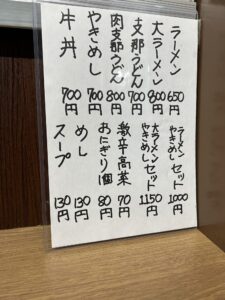 ラーメン 650円
大ラーメン 800円
支那うどん 700円
肉支那うどん 800円
やきめし 700円
牛丼 700円
ラーメン やきめし セット 1000円
大ラーメン やきめし セット 1150円
激辛高菜 70円
おにぎり1個 80円
めし 130円
スープ 130円